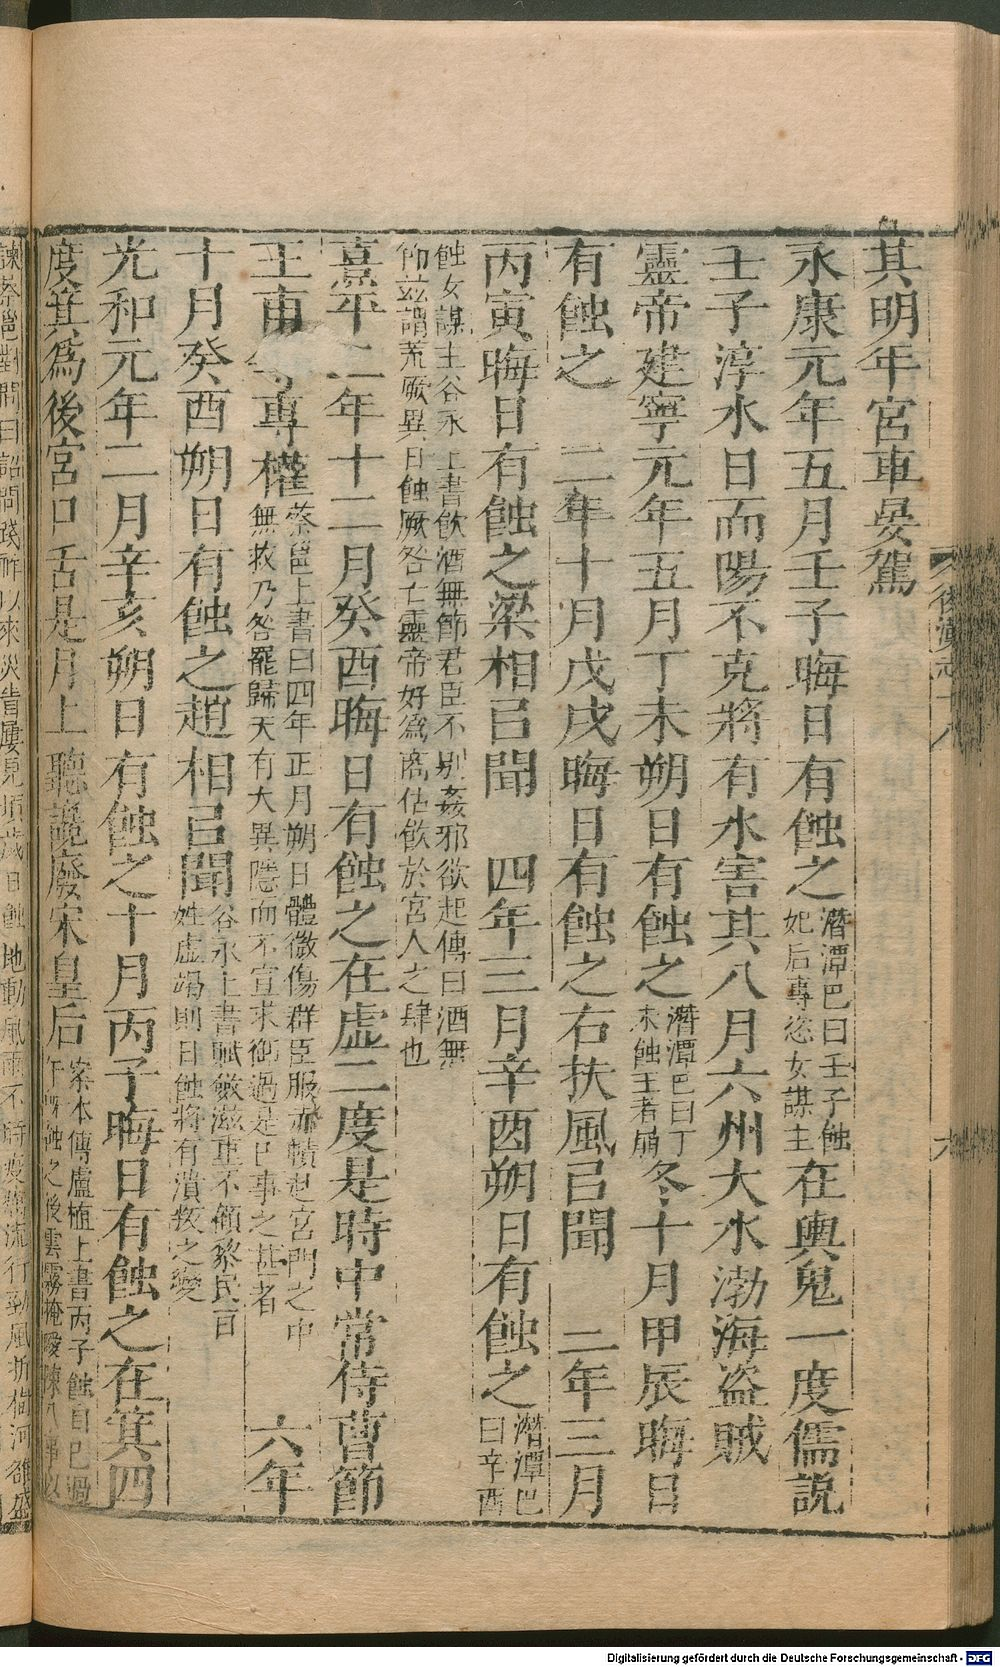 後漢志十八
六
其明年宮車晏駕
永康元年五月壬子晦日有蝕之潛潭巴曰壬子蝕妃后專恣女謀主在輿鬼一度儒說
壬子淳水日而陽不克將有水害其八月六州大水渤海盜賊
靈帝建寧元年五月丁未朔日有蝕之潛潭巴曰丁未蝕王者崩冬十月甲辰晦日
有蝕之 二年十月戊戌晦日有蝕之右扶風㠯聞 三年三月
丙寅晦日有蝕之梁相㠯聞 四年三月辛酉朔日有蝕之潛潭巴曰辛酉
蝕女謀主谷永上書飲酒無節君臣不別姦邪欲起傳曰酒無節茲謂荒厥異日蝕厥咎亡靈帝好爲商估飲於宮人之肆也
熹平二年十二月癸酉晦日有蝕之在虛二度是時中常侍曹節
王甫專權蔡邕上書曰四年正月朔日體微傷群臣服赤幘赴宮門之中無救乃各罷歸天有大異隱而不宣求御過是巳事之甚者 六年
十月癸酉朔日有蝕之趙相㠯聞谷永上書賦斂滋重不顧黎民百姓虛竭則日蝕將有潰叛之變
光和元年二月辛亥朔日有蝕之十月丙子晦日有蝕之在箕四
度箕爲後宮口舌是月上聽讒廢宋皇后案本傳盧植上書丙子蝕自巳過午旣蝕之後雲霧晻曖陳八事以
諫蔡邕對問曰詔問踐祚以來災眚屢見頃歲日蝕地動風雨不時疫癘流行勁風折樹河雒盛
Digitalisierung gefördert durch die Deutsche Forschungsgemeinschaft - DFG